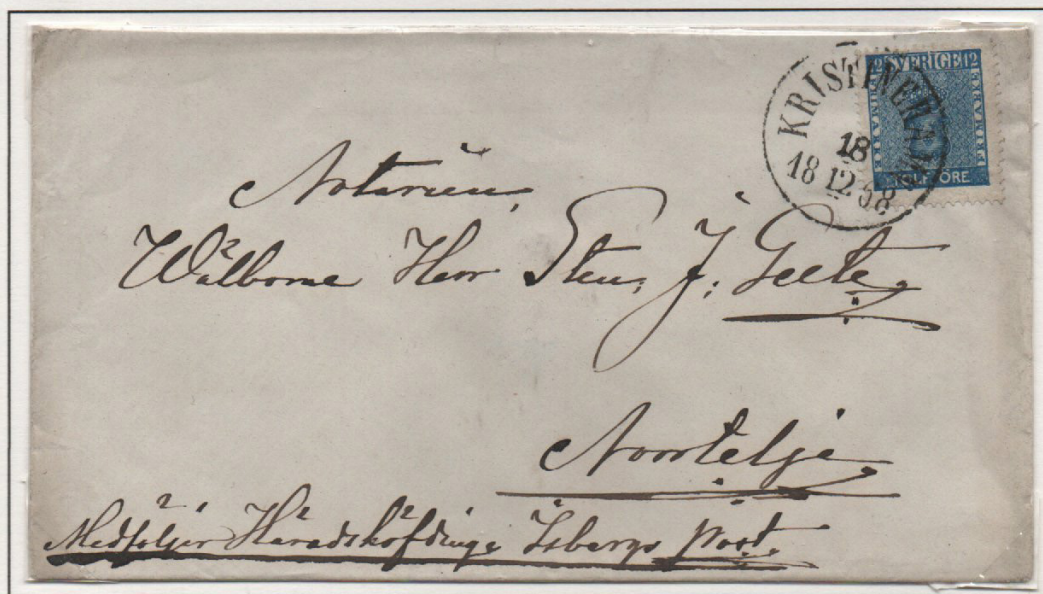 KRISTINEHAMN
18
18 12 58
12 SVERIGE 12
TOLF ÖRE.
Notarien,
Wälborne Herr Sten J: Geete,
Norrtelje,
Medföljer Häradshöfdinge Isbergs post.